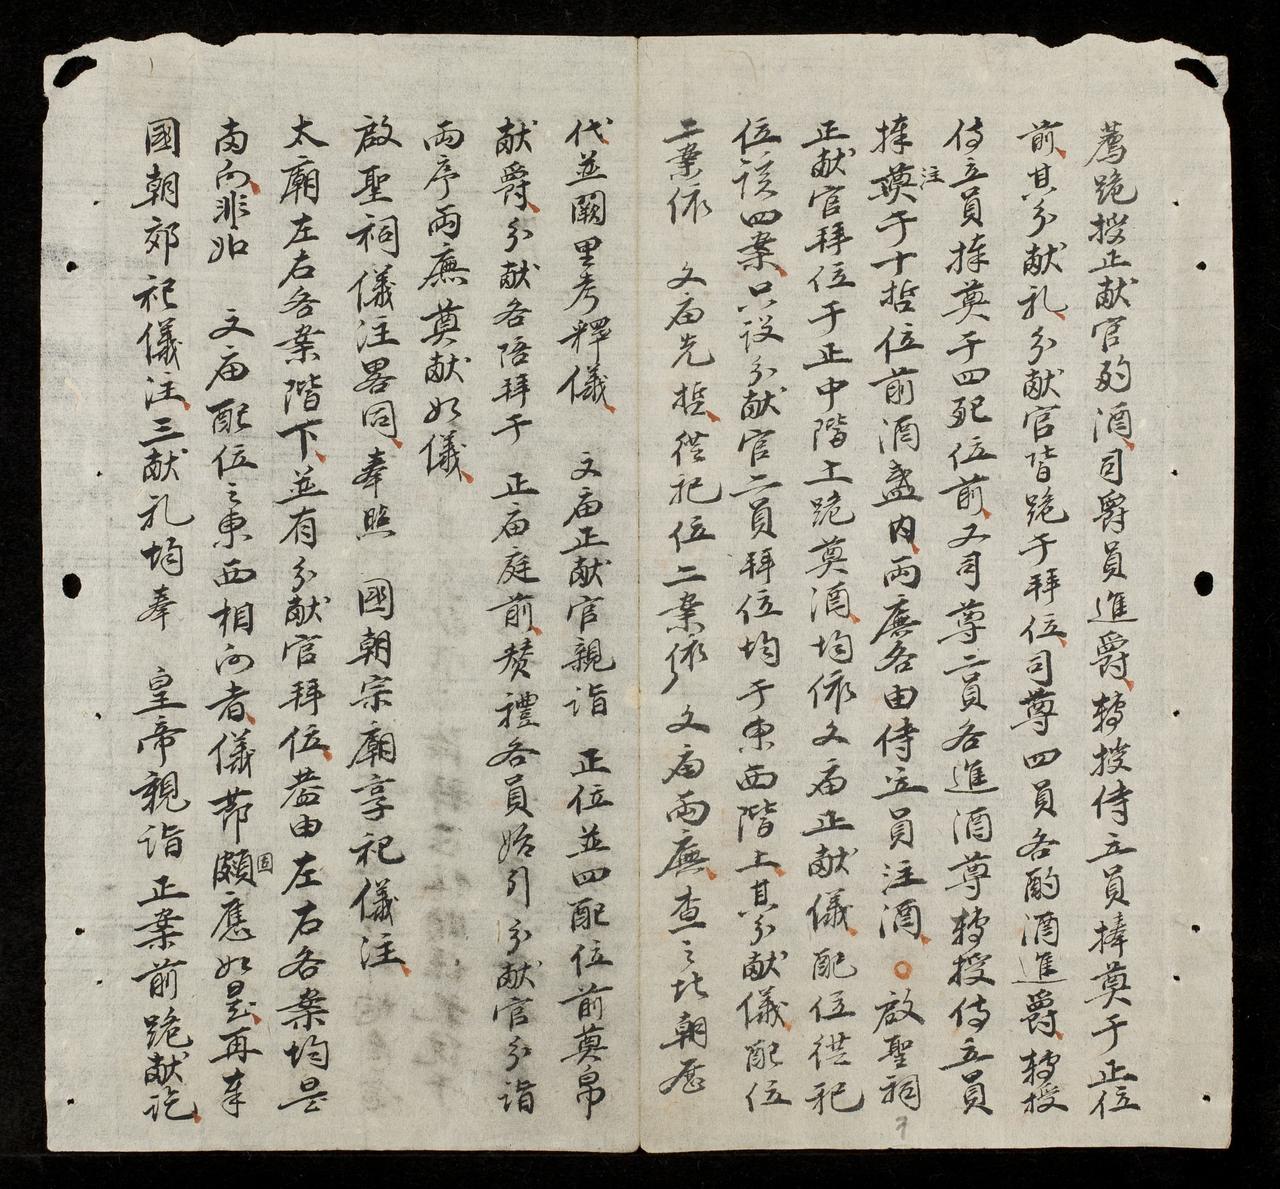 薦跪授正献官酌酒司爵員進爵轉授侍立員捧奠于正位
前其分献礼分献官皆跪于拜位司尊四員各酌酒進爵轉授
侍立員捧奠于四配位前又司尊二員各進酒尊轉授侍立員
捧奠注于十哲位前酒盞内兩廡各由侍立員注酒○啟聖祠
正献官拜位于正中階上跪奠酒均依文庙正献儀配位從祀
位該四案只設分献官二員拜位均于東西階上其分献儀配位
二案依 文庙先哲從祀位二案依文庙兩廡查之北朝歷
代並闕里考釋儀 文庙正献官親詣 正位並四配位前奠帛
献爵分献各陪拜于 正庙庭前贊禮各員始引分献官分詣
兩序兩廡奠献如儀
啟聖祠儀注畧同奉照 國朝宗廟享祀儀注
太廟左右各案階下並有分献官拜位蓋由左右各案均是
南向非如 文庙配位之東西相向者儀節頗固應如是再奉
國朝郊祀儀注三献礼均奉 皇帝親詣正案前跪献訖